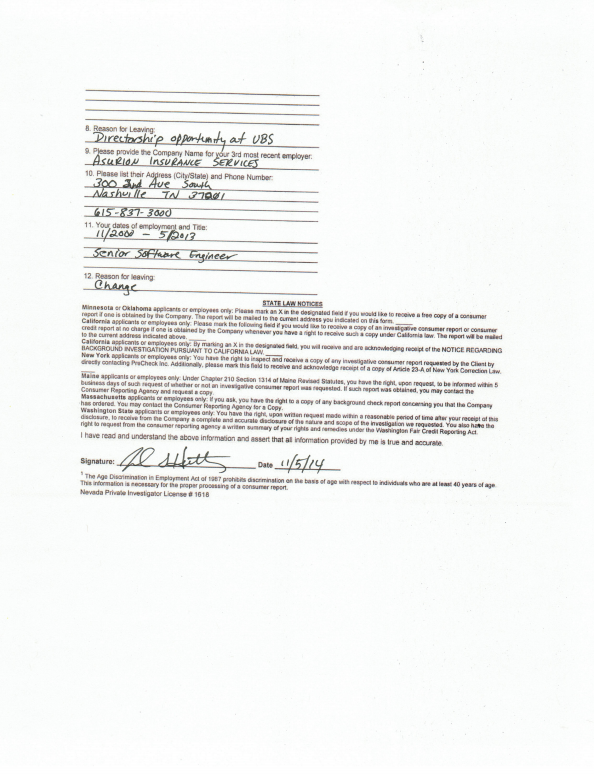 8. Reason for Leaving:
Directorship opportunity at UBS
9. Please provide the Company Name for your 3rd most recent employer:
ASURION INSURANCE SERVICES
10. Please list their Address (City/State) and Phone Number:
300 Ave South
Nashville TN 37201
615-837-3000
11. Your dates of employment and Title:
11/2000 – 5/2013
Senior Software Engineer
12. Reason for leaving:
Change
STATE LAW NOTICES
Minnesota or Oklahoma applicants or employees only: Please mark an X in the designated field if you would like to receive a free copy of a consumer
report if one is obtained by the Company. The report will be mailed to the current address you indicated on this form. ____
California applicants or employees only: Please mark the following field if you would like to receive a copy of an investigative consumer report or consumer
credit report at no charge if one is obtained by the Company whenever you have a right to receive such a copy under California law. The report will be mailed
to the current address indicated above. ____
California applicants or employees only: By marking an X in the designated field, you will receive and are acknowledging receipt of the NOTICE REGARDING
BACKGROUND INVESTIGATION PURSUANT TO CALIFORNIA LAW. ____
New York applicants or employees only: You have the right to inspect and receive a copy of any investigative consumer report requested by the Client by
directly contacting PreCheck Inc. Additionally, please mark this field to receive and acknowledge receipt of a copy of Article 23-A of New York Correction Law.
____
Maine applicants or employees only: Under Chapter 210 Section 1314 of Maine Revised Statutes, you have the right, upon request, to be informed within 5
business days of such request of whether or not an investigative consumer report was requested. If such report was obtained, you may contact the
Consumer Reporting Agency and request a copy.
Massachusetts applicants or employees only: If you ask, you have the right to a copy of any background check report concerning you that the Company
has ordered. You may contact the Consumer Reporting Agency for a Copy.
Washington State applicants or employees only: You have the right, upon written request made within a reasonable period of time after your receipt of this
disclosure, to receive from the Company a complete and accurate disclosure of the nature and scope of the investigation we requested. You also have the
right to request from the consumer reporting agency a written summary of your rights and remedies under the Washington Fair Credit Reporting Act.
I have read and understand the above information and assert that all information provided by me is true and accurate.
Signature: Date 11/5/14
1 The Age Discrimination in Employment Act of 1967 prohibits discrimination on the basis of age with respect to individuals who are at least 40 years of age.
This information is necessary for the proper processing of a consumer report.
Nevada Private Investigator License # 1618